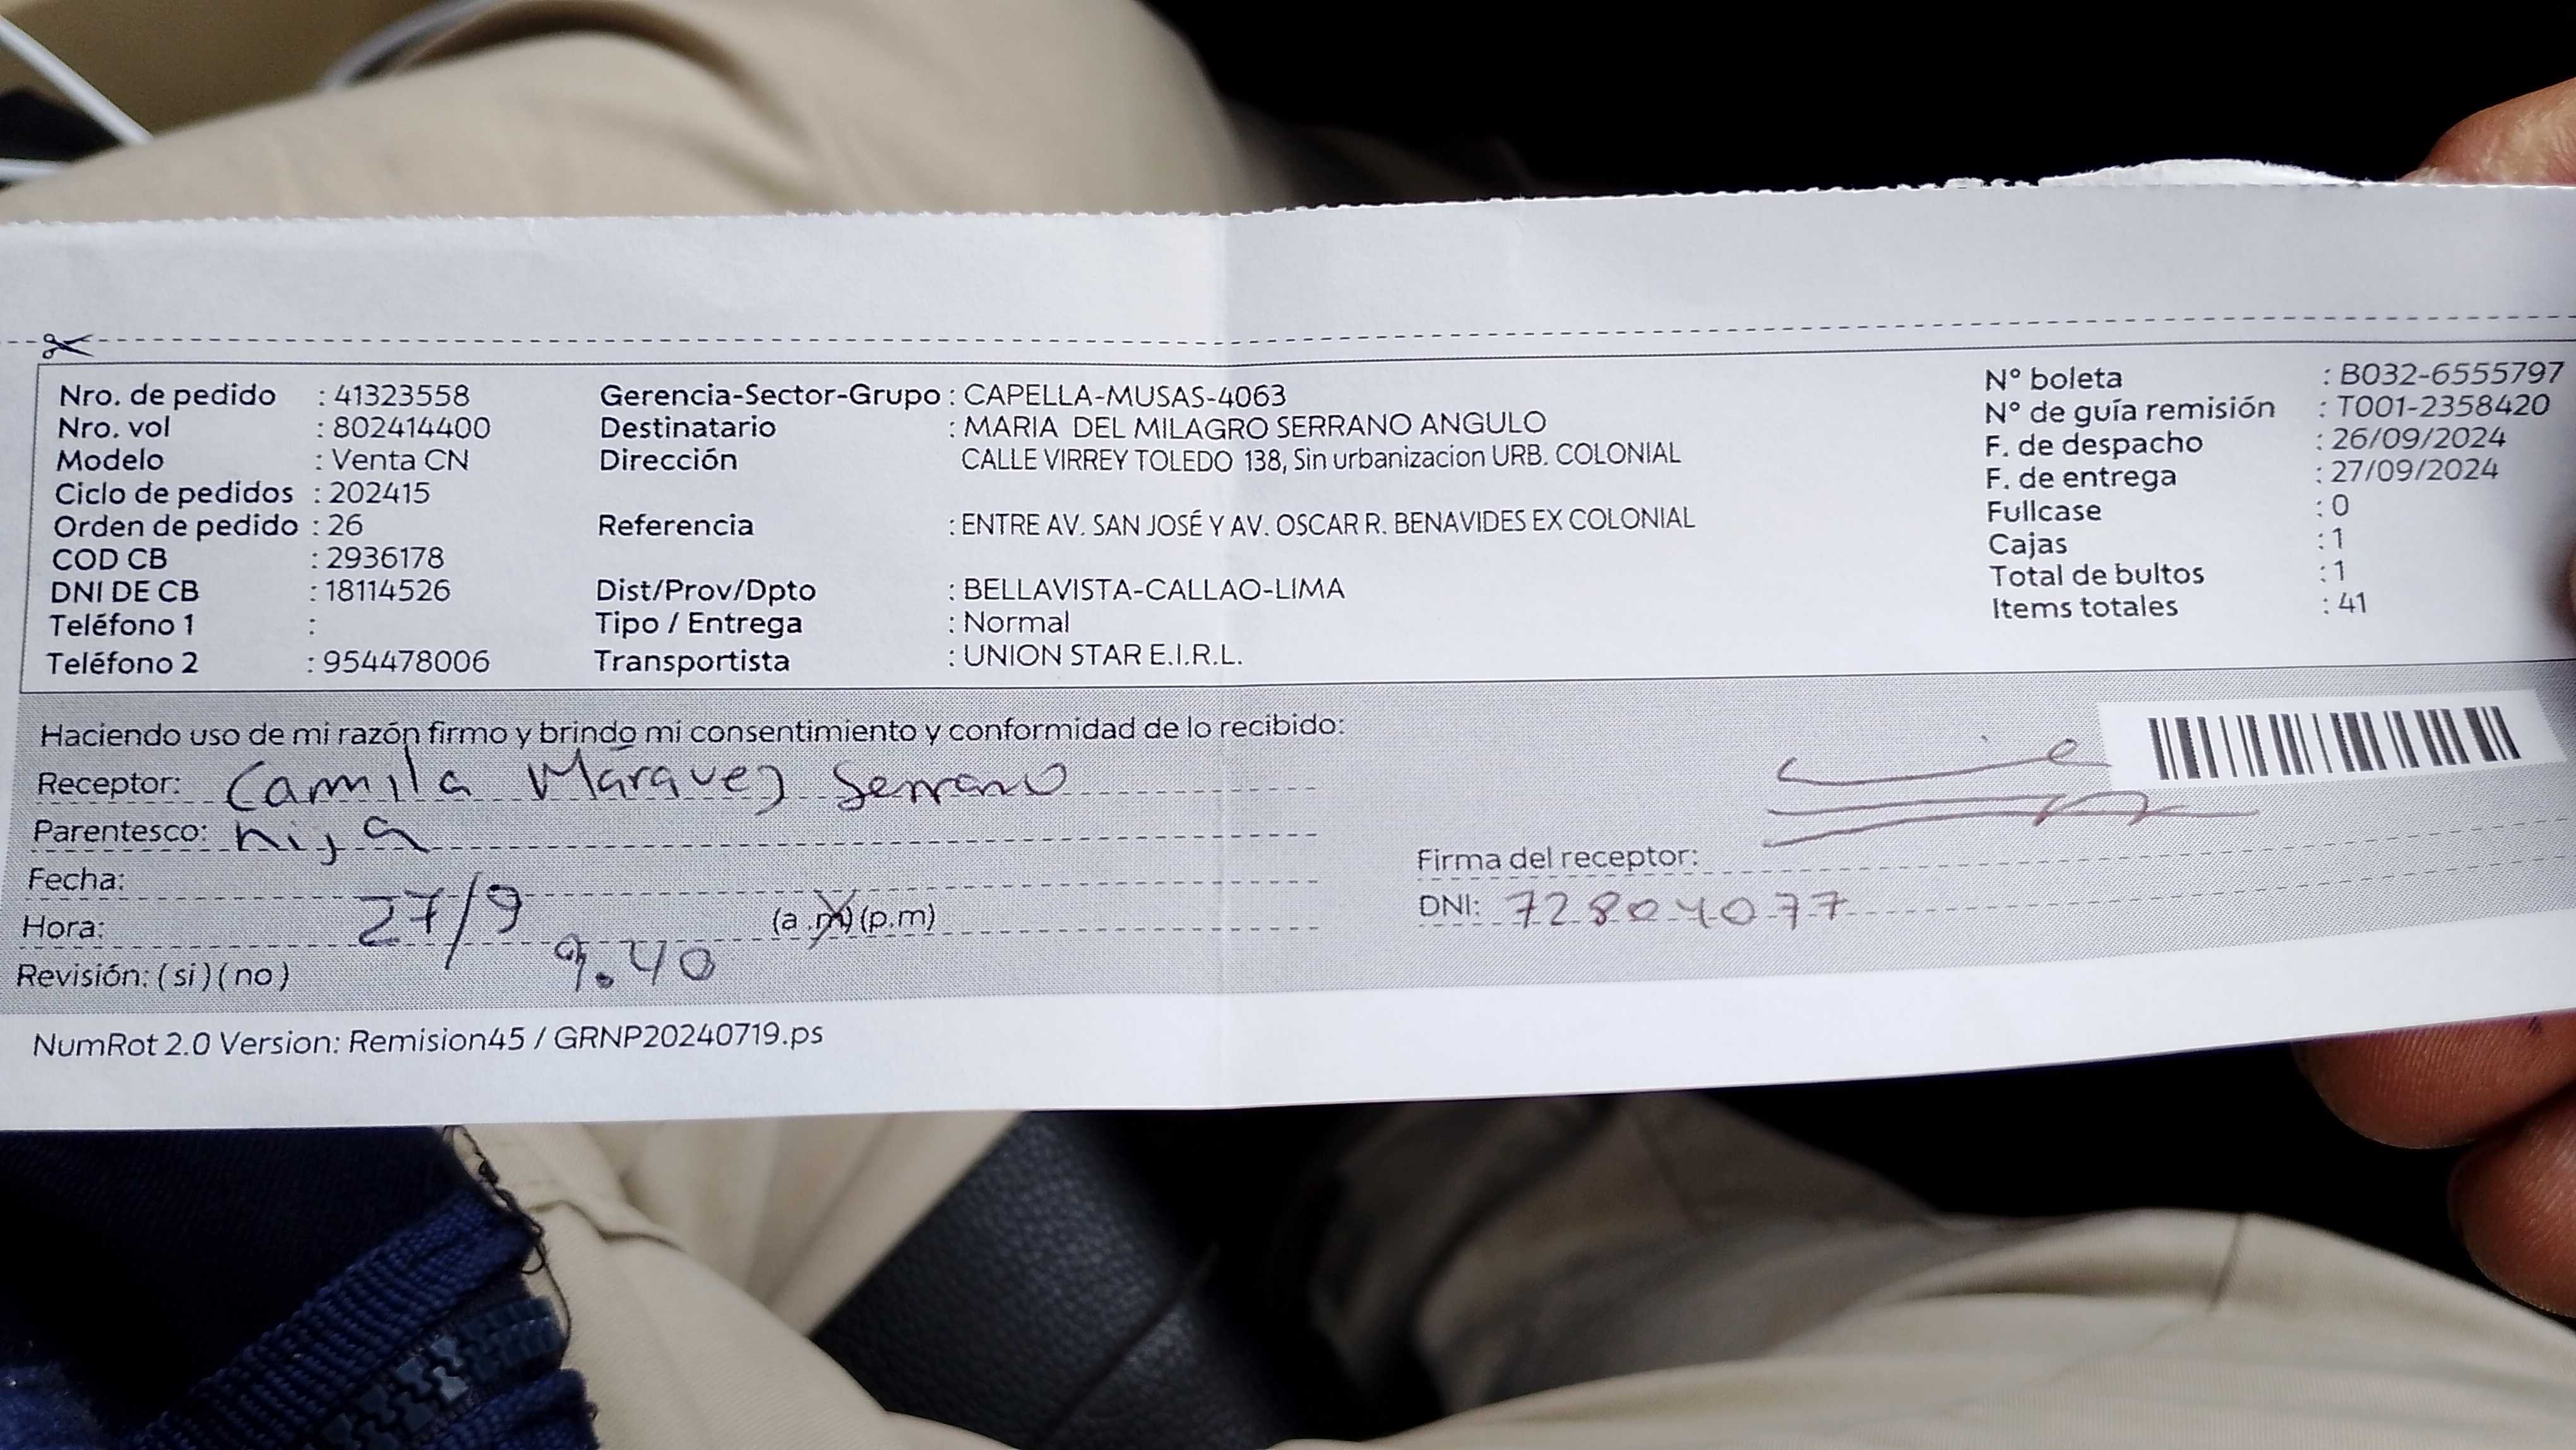 Nro. de pedido : 41323558
Nro. vol : 802414400
Modelo : Venta CN
Ciclo de pedidos : 202415
Orden de pedido : 26
COD CB : 2936178
DNI DE CB : 18114526
Teléfono 1 :
Teléfono 2 : 954478006
Gerencia-Sector-Grupo : CAPELLA-MUSAS-4063
Destinatario : MARIA DEL MILAGRO SERRANO ANGULO
Dirección CALLE VIRREY TOLEDO 138, Sin urbanizacion URB. COLONIAL
Referencia : ENTRE AV. SAN JOSÉ Y AV. OSCAR R. BENAVIDES EX COLONIAL
Dist/Prov/Dpto : BELLAVISTA-CALLAO-LIMA
Tipo / Entrega : Normal
Transportista : UNION STAR E.I.R.L.
N° boleta : B032-6555797
N° de guía remisión : T001-2358420
F. de despacho : 26/09/2024
F. de entrega : 27/09/2024
Fullcase : 0
Cajas : 1
Total de bultos : 1
Items totales : 41
Haciendo uso de mi razón firmo y brindo mi consentimiento y conformidad de lo recibido:
Receptor: Camila Márquez Serrano
Parentesco: hija
Fecha: 27/9
Hora: 9.40 (a.m) (p.m)
Revisión: (si) (no)
Firma del receptor:
DNI: 72804077
NumRot 2.0 Version: Remision45 / GRNP20240719.ps